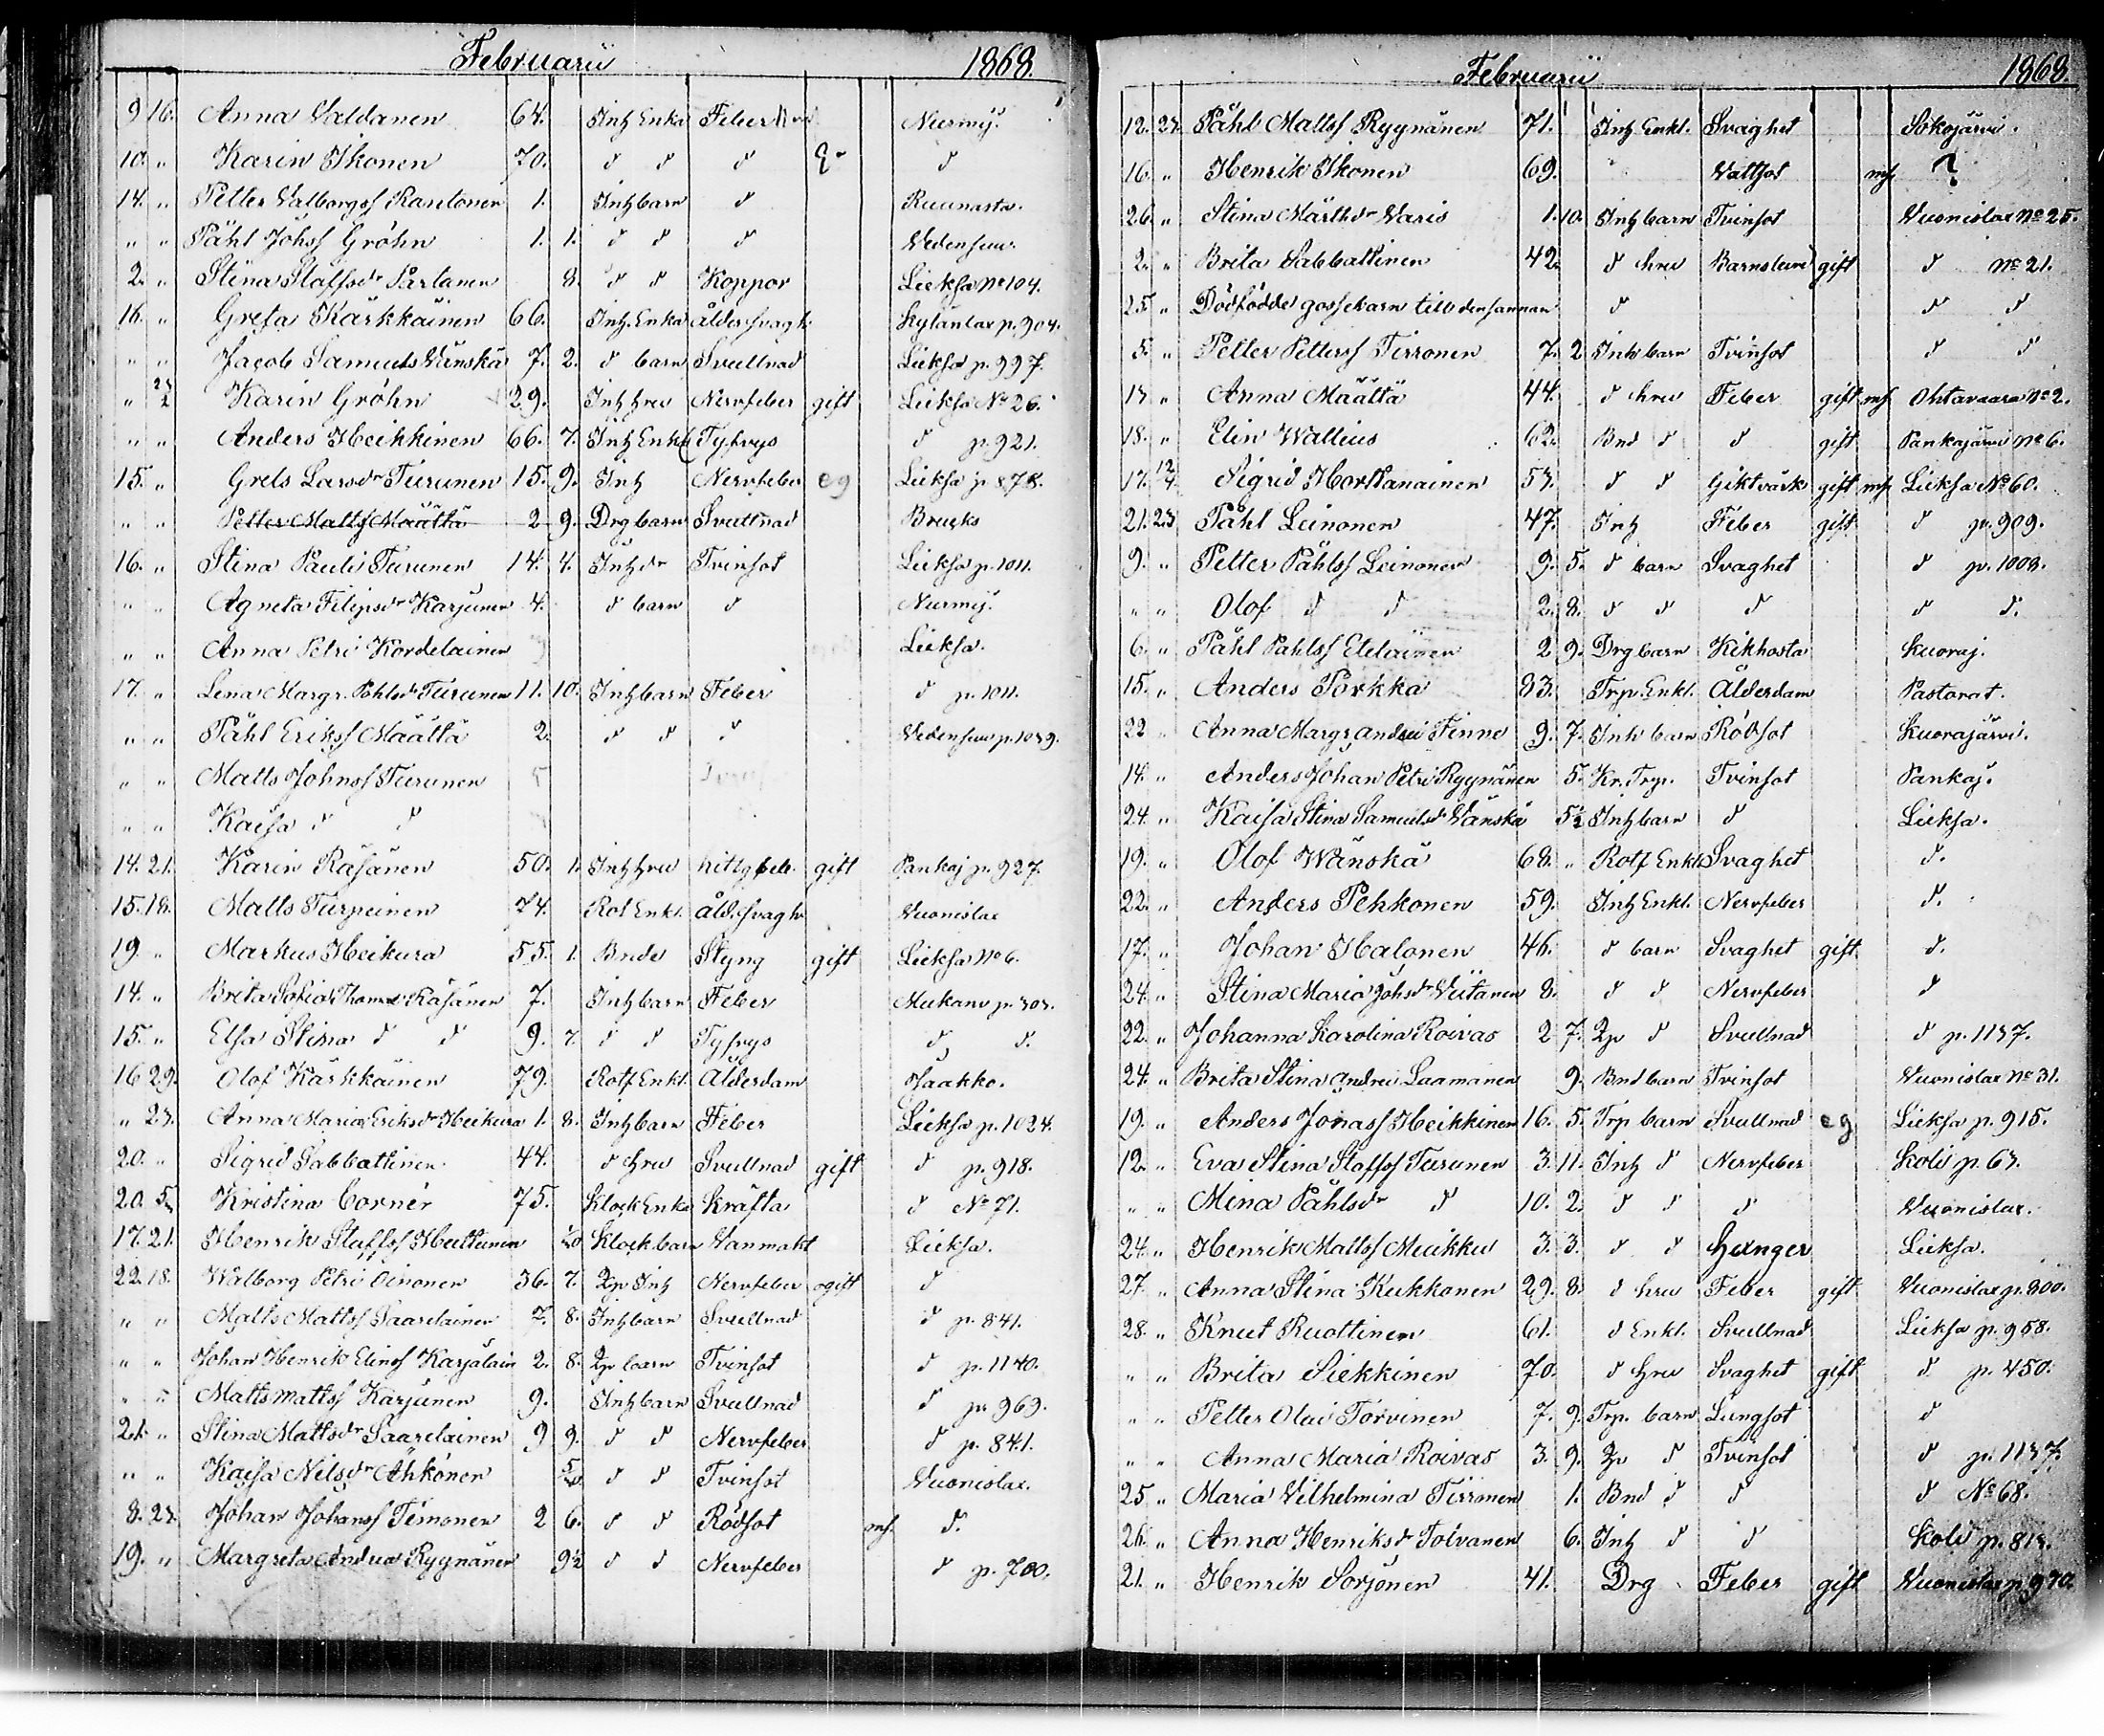 Februarii 1868.
9 16. Anna Saldanen 64. Inh Enka Feber Nurmij.
10. " Karin Ikonen 70. d d d d
14. " Petter Valborgss Rantonen 1. Inhbarn d Ruunarta.
" " Påhl Johss Gröhn 1. 1. d d d Vedensuu.
2. " Stina Staffsdr Sartanen 8. d d Koppor Lieksa No 104.
16. " Greta Kärkkäinen 66. Inh. Enka ålder.svagh. Kylänlax p. 904.
" " Jacob Samuels Wänskä 7. 2. d barn Svullnad Lieksa p. 997.
" 23/2 Karin Gröhn 29. Inh hru Nervfeber gift Lieksa No 26.
" " Anders Heikkinen 66. 7. Inh Enkl Tyfvys d p. 921.
15. " Grels Larsdr Turunen 15. 9. Inh Nervfeber eg Lieksa p. 878.
" " Petter Mattss Määttä 2 9. Drg barn Svullnad Brucks
16. " Stina Pauli Turunen 14. 4. Inhdr Tvinsot Lieksa p. 1011.
" " Agneta Filipsdr Karjunen 4. d barn d Nurmij.
" " Anna Petri Kordelainen Lieksa.
17. " Lena Margr. Påhlsdr Turunen 11. 10. Inhbarn Feber d p. 1011.
" " Påhl Erikss Määttä 2. d d d Vedensuu p. 1039.
" " Matts Johnss Turunen 5
" " Kaisa d d
14. 21. Karin Räsänen 50. 1. Inhhru hittgfeb. gift Pankaj p. 927.
15. 18. Matts Turpeinen 74. Rot Enkl. åld.svagh Vuonislax
19. " Markus Heikura 55. 1. Bnde Styng gift Lieksa No 6.
14. " Brita Sofia Thomasdr Räsänen 7. Inhbarn Feber Mukanv p. 303.
15. " Elsa Stina d d 9. 7. d d Tyfvys d d.
16 29. Olof Kärkkäinen 79. Rotf Enkl. Ålderdom Jaakko.
" 23. Anna Maria Eriksdr Heikura 1. 8. Inhbarn Feber Lieksa p. 1024.
20. " Sigrid Sabbattinen 44. d hru Svullnad gift d p. 918.
20. 5. Kristina Cornér 75. Klock Enka Kräfta d No 71.
17. 21. Henrik Staffss Huttunen Klock barn Vanmakt Lieksa.
22. 18. Walborg Petri Oinonen 36. 7. Inh Nervfeber ogift d
" " Matts Mattss Saarelainen 7. 8. Inhbarn Svullnad d p. 841.
" " Johan Henrik Elinss Karjalain 2. 8. barn Tvinsot d p. 1140.
" " Matts Mattss Karjunen 9. Inhbarn Svullnad d p. 969.
21. " Stina Mattsdr Saarelainen 9 9. d d Nervfeber d p. 841.
" " Kaisa Nilsdr Ähkönen d d Tvinsot Vuonislax.
8. 23. Johan Johanss Timonen 2 6. d d Rödsot mf. d.
19. " Margreta Andrea Ryynänen 9½ d d Nervfeber d p. 780.
Februarii 1868.
12. 23. Påhl Mattss Ryynänen 71. Inh Enkl. Svaghet Sokojärvi.
16. " Henrik Ikonen 69. Vattsot mf. ?
26. " Stina Märthdr Varis 1. 10. Inhbarn Tvinsot Vuonislax No 25.
2. " Brita Sabbattinen 42. d hru Barnsbörd gift d No 21.
25. " Dödfödde gossebarn till densamman d d d
5. " Petter Petterss Tirronen 7. 2 Inh barn Tvinsot d d
13. " Anna Määttä 44. d hru Feber gift mf. Ohtavaara No 2.
18. " Elin Wallius 62. Bnd d d gift Pankajärvi No 6.
17. 12/4 Sigrid Hortanainen 53. d d Giktvärk gift mf. Lieksa No 60.
21. 23 Påhl Leinonen 47. Inh Feber gift d p. 909.
9. " Petter Påhlss Leinonen 9. 5. d barn Svaghet d p. 1008.
" " Olof d d 2. 8. d d d d d.
6. " Påhl Pahlss Eteläinen 2 9. Drg barn Kikhosta Kuoraj.
15. " Anders Porkka 83. Trp. Enkl. Ålderdom Pastorat.
22 " Anna Margr Andrei Finne 9. 7. Inh barn Rödsot Kuorajärvi.
14. " Anders Johan Petri Ryynänen 5. Kr. Trp. Tvinsot Pankaj.
24. " Kaisa Stina Samuelsdr Vänskä 5½ Inhbarn d Lieksa.
19. " Olof Wänskä 68. " Rotf Enkl Svaghet d.
22. " Anders Pehkonen 59. Inh Enkl. Nervfeber d.
17. " Johan Halonen 46. d barn Svaghet gift d.
24. " Stina Maria Johsdr Viitanen 8. d d Nervfeber d
22. " Johanna Karolina Roivas 2 7. d Svullnad d p. 1137.
24. " Brita Stina Andrei Laamanen 9. Bnd barn Tvinsot Vuonislax No 31.
19. " Anders Jonass Heikkinen 16. 5. Trp barn Svullnad eg Lieksa p. 915.
12. " Eva Stina Staffss Turunen 3. 11. Inh d Nervfeber Koli p. 63.
" " Mina Påhlsdr d 10. 2. d d d Vuonislax.
24. " Henrik Mattss Muikku 3. 3. d d Hunger Lieksa.
27. " Anna Stina Kukkonen 29. 8. d hru Feber gift Vuonislax p. 800.
28. " Knut Ruottinen 61. d Enkl. Svullnad Lieksa p. 958.
" " Brita Siekkinen 70. d hru Svaghet gift d p. 450.
" " Petter Olai Torvinen 7. 9. Trp. barn Lungsot d
" " Anna Maria Roivas 3. 9. d Tvinsot d p. 1137.
25. " Maria Vilhelmina Tirronen 1. Bnd d d d No 68.
26. " Anna Henriksd Tolvanen 6. Inh d d Koli p. 813.
21. " Henrik Sorjonen 41. Drg Feber gift Vuonislax p. 970.